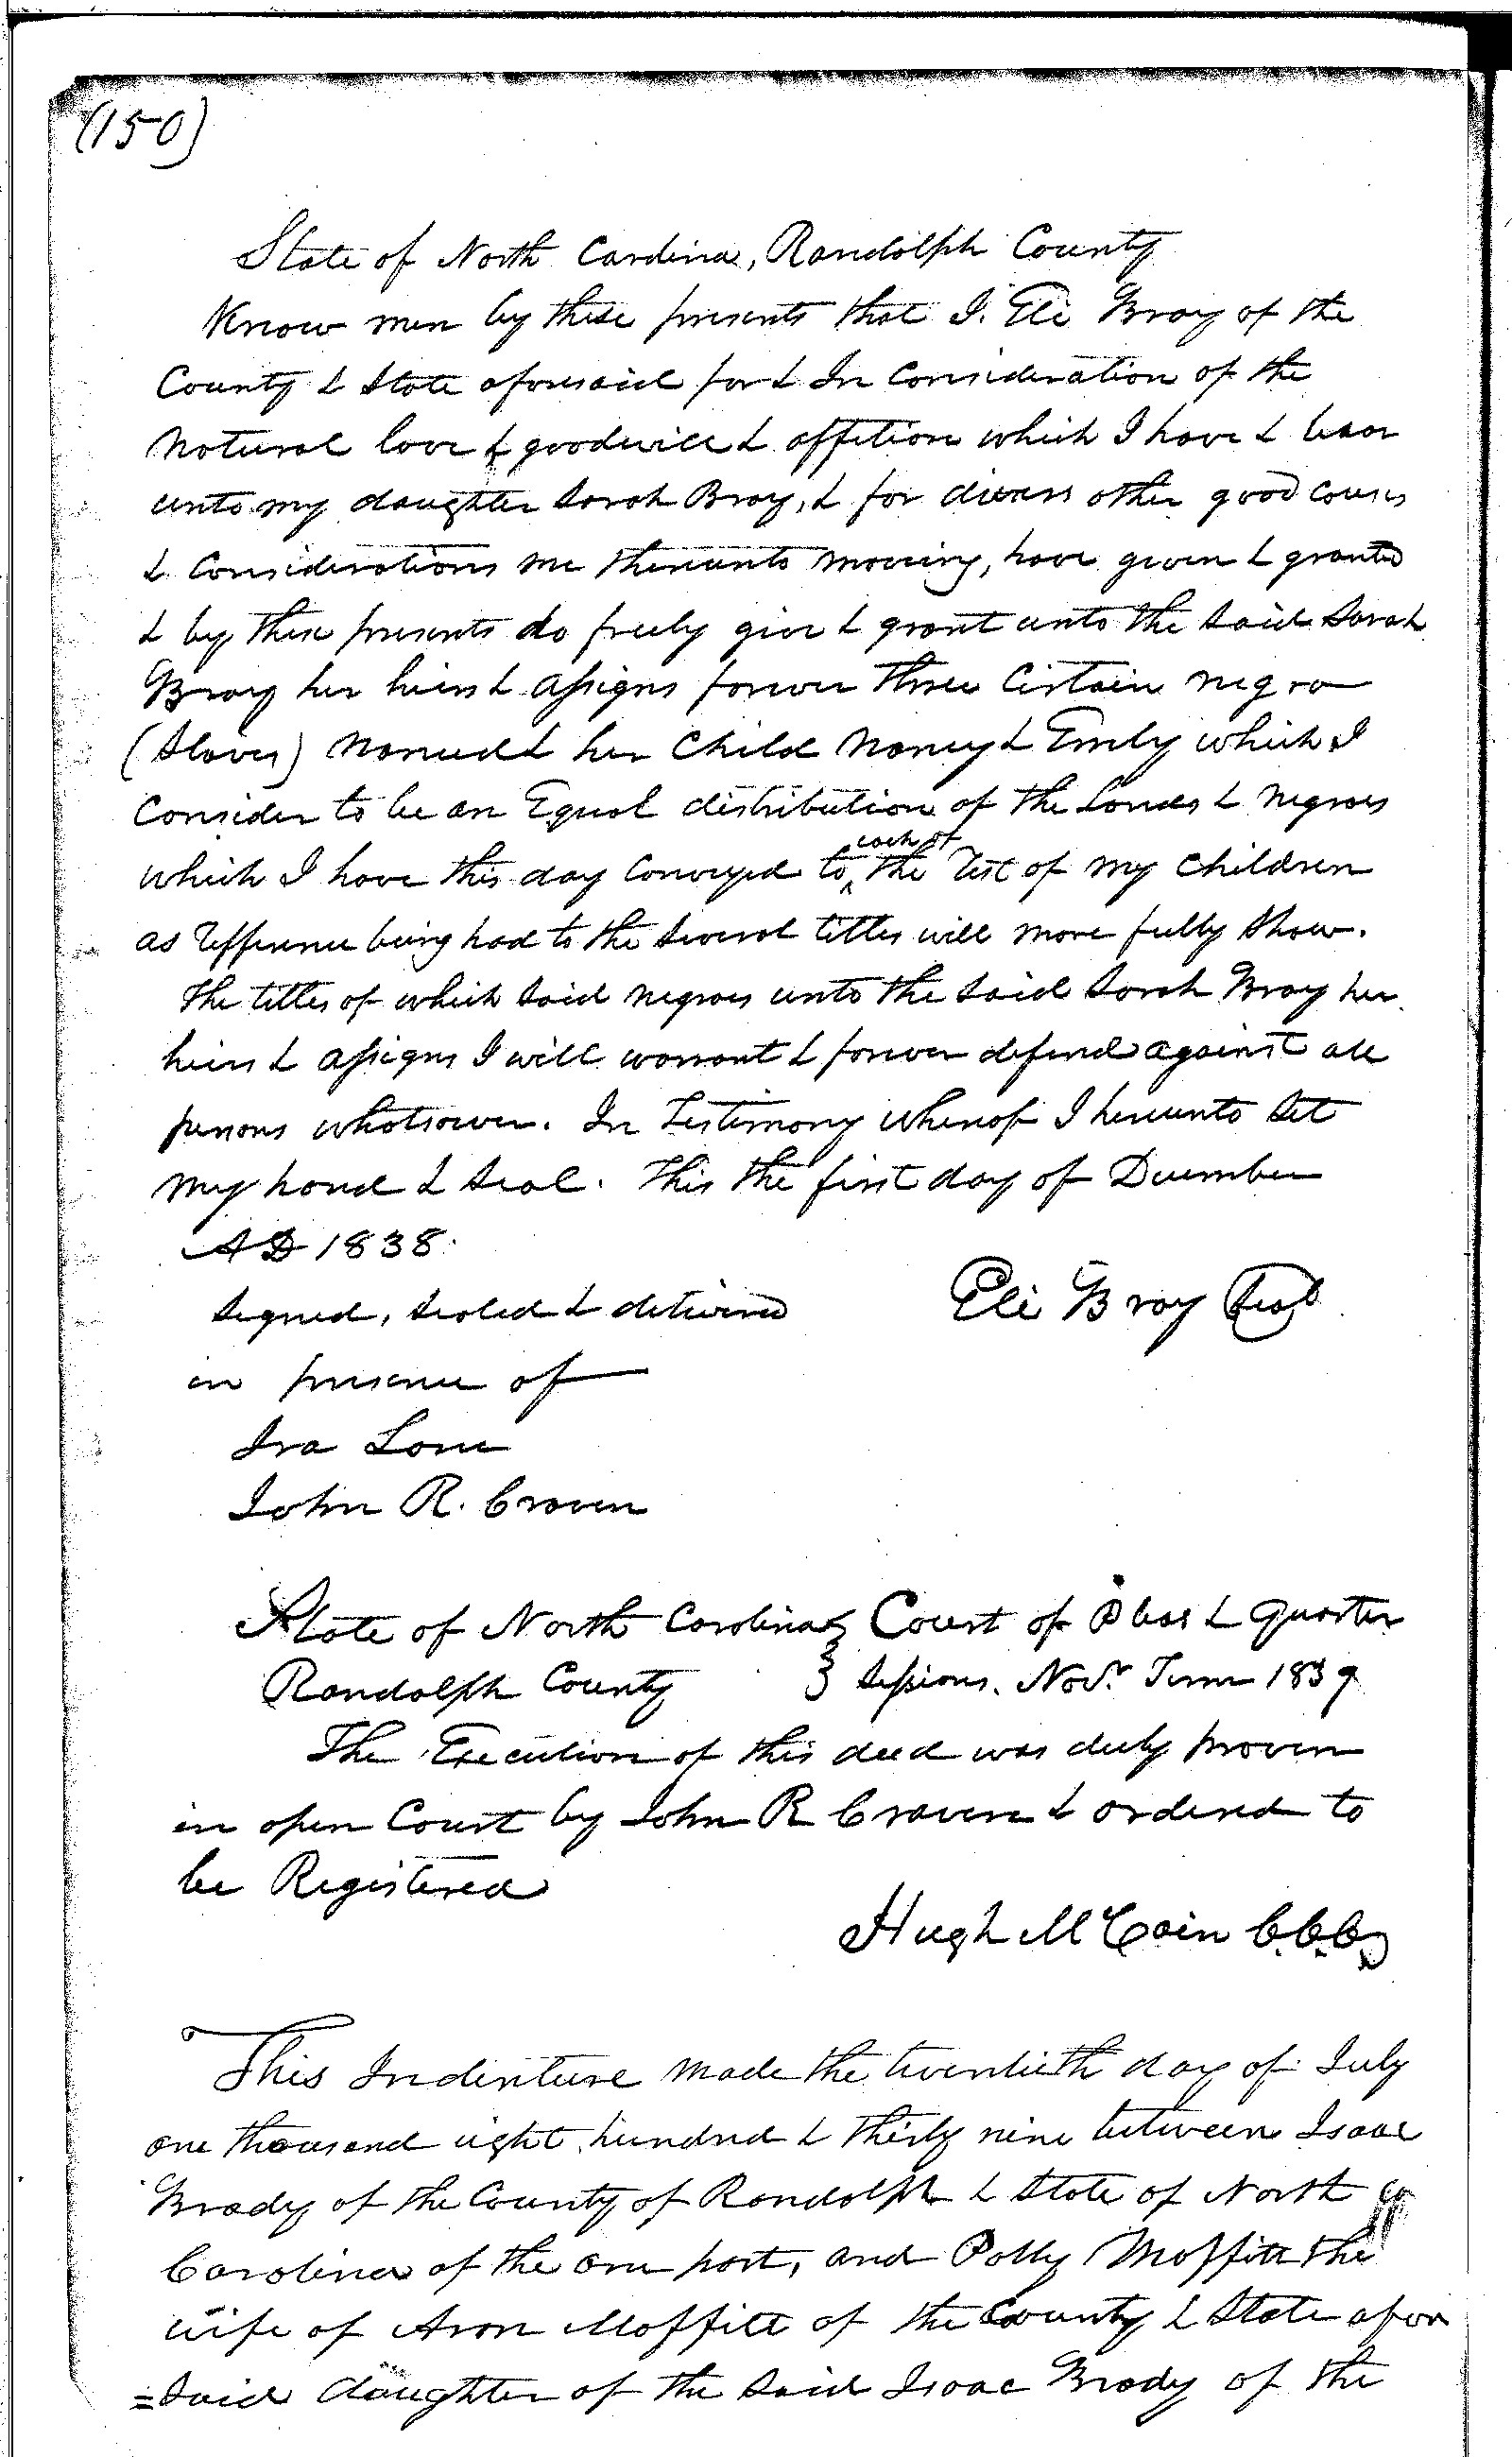 (150)
State of North Cardina, Randolph County
Know men by these presents that I. Eli Bray of the
County & State aforesaid for & In Consideration of the
Natural love & goodwill & affition which I have & bear
unto my daughter Sarah Bray, & for divers other good causes
& Considerations me thereunto moving, have given & granted
& by these presents do freely give & grant unto the Said Sarah
Bray her heirs & assigns forever three Certain negro
(Slaves) Named & her Child Nancy & Emily which I
Consider to be an Equal distribution of the Lands & Negroes
which I have this day Conveyed to each of the rest of my Children
as refference being had to the Several titles will more fully Show.
The titles of which Said negroes unto the Said Sarah Bray her
heirs & assigns I will warrant & forever defend against all
persons whatsoever. In Testimony whereof I hereunto Set
my hand & Seal. This the first day of December
AD 1838.
Signed, Sealed & delivered Eli Bray Seal
in presence of
Ira Lane
John R. Craven
State of North Carolina } Court of Pleas & Quarter
Randolph County } Sessions. Nov.r Term 1839
The Execution of this deed was duly proven
in open Court by John R Craven & ordered to
be Registered
Hugh McCain C.C.C.
This Indenture made the twentieth day of July
one thousand eight hundred & thirty nine between Isaac
Brady of the County of Randolph & State of North
Carolina of the one part, and Polly Moffitt the
wife of Aron Moffitt of the County & State afore
=Said daughter of the Said Isaac Brady of the